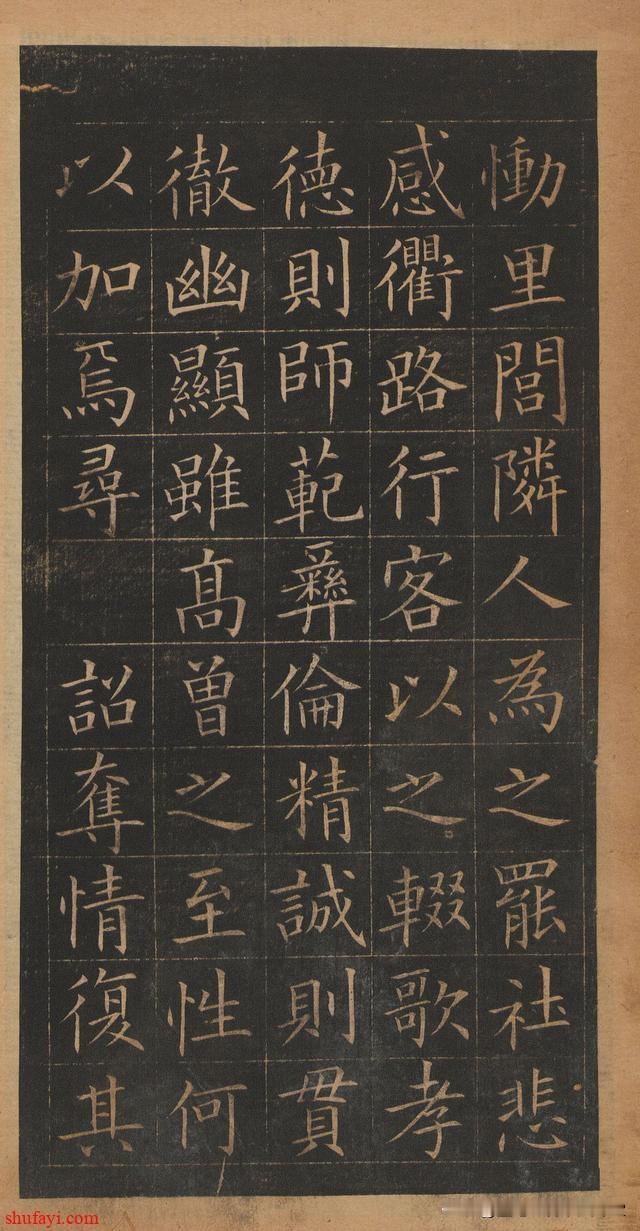 慟里閭隣人為之罷社悲
感衢路行客以之輟歌孝
徳則師範彝倫精誠則貫
徹幽顯雖高曽之至性何
以加焉尋 詔奪情復其
shufayi.com